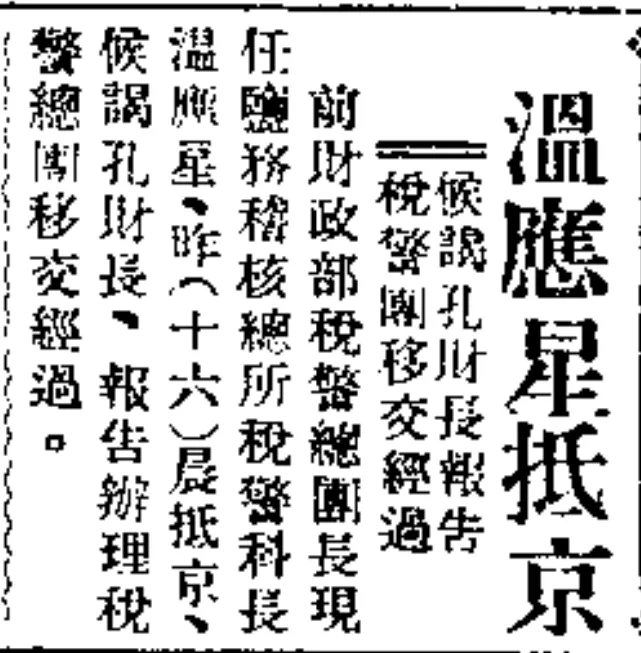 溫應星抵京
候謁孔財長報告
稅警團移交經過
前財政部稅警總團長現
任鹽務稽核總所稅警科長
溫應星、昨(十六)晨抵京、
候謁孔財長、報告辦理稅
警總團移交經過。